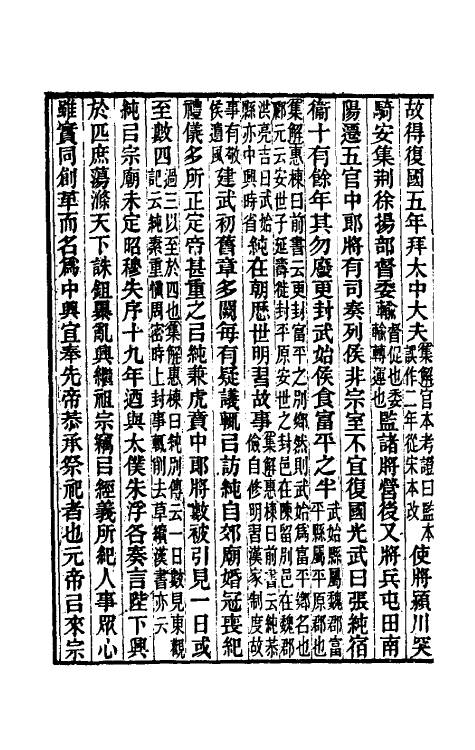 故得復國五年拜太中大夫集解官本考證曰監本誤作二年從宋本改使將潁川突
騎安集荆徐揚部督委輸督促也委輸轉運也監諸將營後又將兵屯田南
陽遷五官中郎將有司奏列侯非宗室不宜復國光武曰張純宿
衞十有餘年其勿廢更封武始侯食富平之半武始縣屬魏郡富平縣屬平原郡也
集解惠棟曰前書云更封富平之別鄉然則武始爲富平鄉名也酈元云安世子延壽徙封平原安世之封邑在陳留別邑在魏郡
洪亮吉曰武始縣亦中興時省純在朝歴世明習故事集解惠棟曰前書云純恭儉自修明習漢家制度故
事有敬侯遺風建武初舊章多闕每有疑議輒㠯訪純自郊廟婚冠喪紀
禮儀多所正定帝甚重之㠯純兼虎賁中郎將數被引見一日或
至數四過三以至於四也集解惠棟曰純別傳云一日數見東觀記云純素重慎周密時上封事輒削去草續漢書亦云
純㠯宗廟未定昭穆失序十九年迺與太僕朱浮各奏言陛下興
於匹庶蕩滌天下誅鉏暴亂興繼祖宗竊㠯經義所紀人事眾心
雖實同創革而名爲中興宜奉先帝恭承祭祀者也元帝㠯來宗